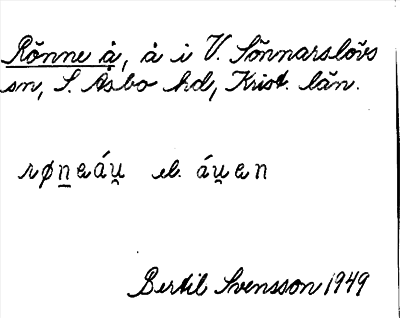 Rönne å, å i V. Sönnarslövs
sn, S. Åsbo hd, Krist. län.
røn̲eáu̯ el. áu̯en
Bertil Svensson 1949